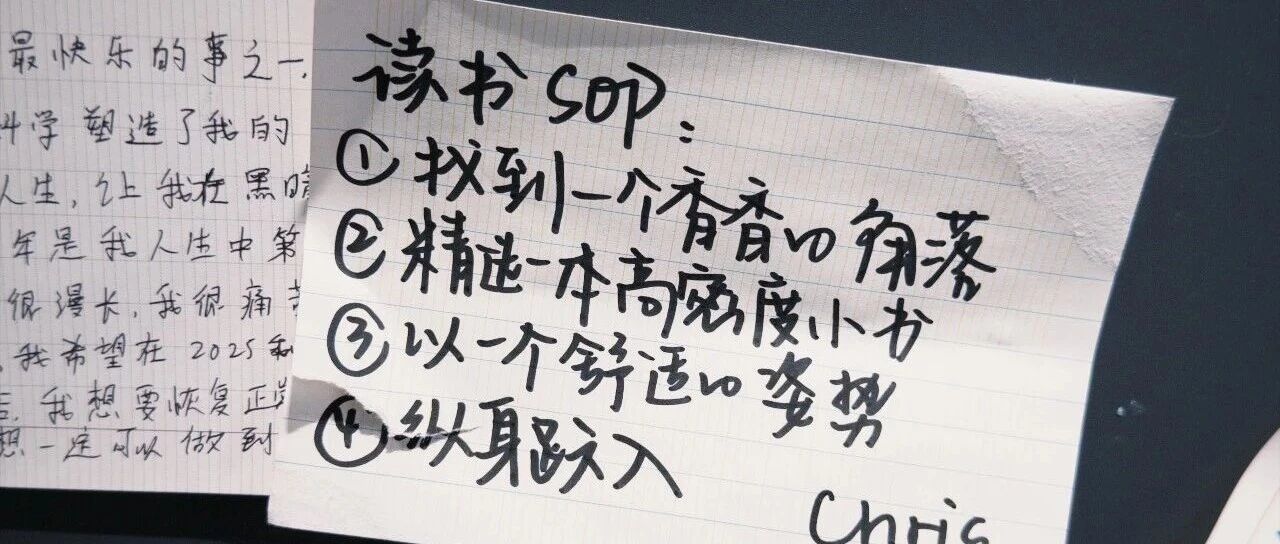 最快乐的事之一.
学塑造了我的
人生,让我在黑暗
年是我人生中第
很漫长,我很痛苦
我希望在2025
我想要恢复正
想一定可以做到
读书SOP:
①找到一个香香的角落
②精选一本高密度小书
③以一个舒适的姿势
④纵身跃入
Chris